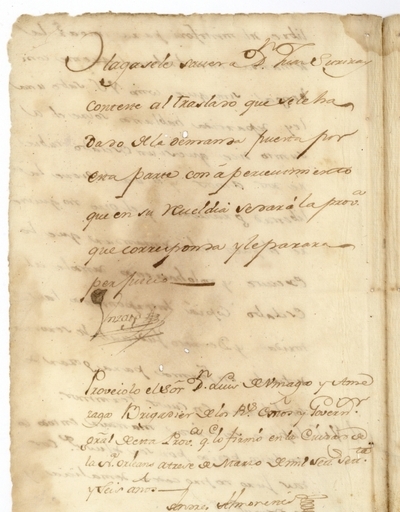 Hagasele saver a Dn. Juan
conteste al traslado que sele ha
Dado de la demanda puesta por
esta parte con apercevimiento
que en su Reveldia sedará la prova.
que corresponda y leparara
perjuicio
Unzaga
Proveiolo el Sor. Dn. Luis de Unzaga y Ame
zaga Brigadier de los Rs. Exercitos y Govern.
gral de esta Prova. q. lo firmó en la Ciudad de
la Na. Orleans a trese de Marzo de mil Setts. Sett.
y seis anos
Almonester